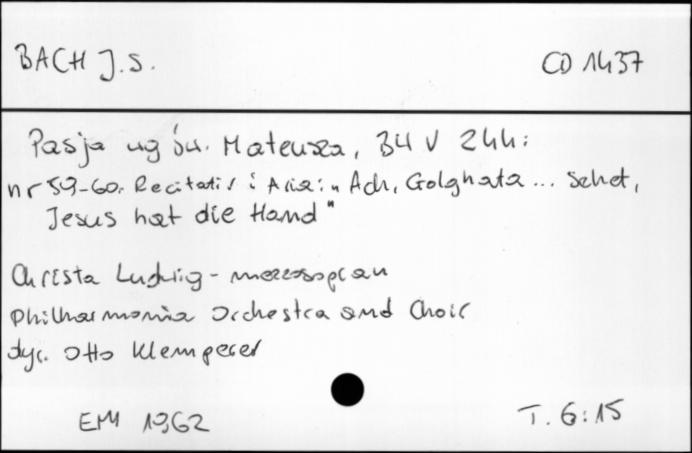 BACH J.S. CD 1437
Pasja wg św. Mateusza, BWV 244:
nr 59-60. Recitativ i Aria: „Ach, Golghata... Sehet,
Jesus hat die Hand"
Christa Ludwig - mezzosopran
Philharmonia Orchestra and Choir
dyr. Otto Klemperer
EMI 1962 T. 6:15